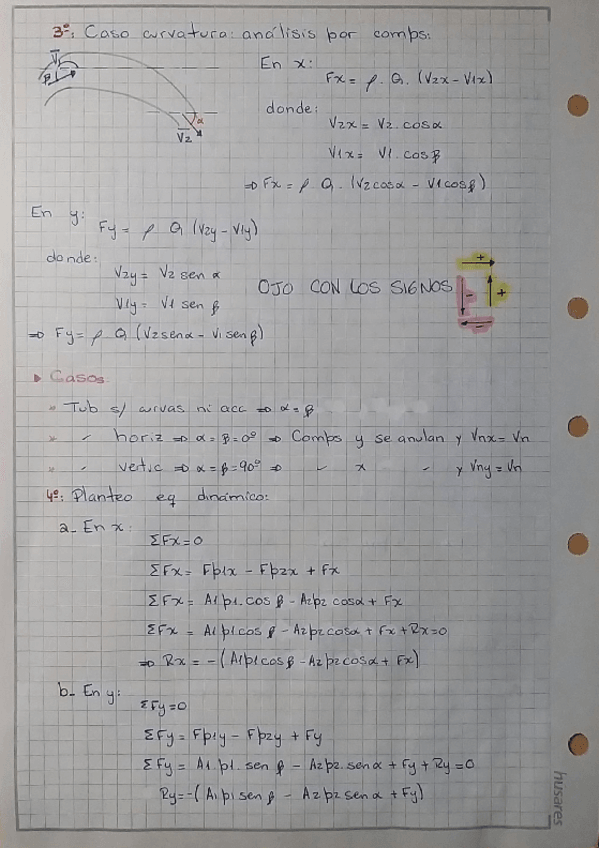 3º: Caso curvatura: análisis por comps:
V1
β
α
V2
En x:
Fx = ρ . Q . (V2x - V1x)
donde:
V2x = V2 . cosα
V1x = V1 . cosβ
⇒ Fx = ρ Q . (V2cosα - V1cosβ)
En y:
Fy = ρ Q (V2y - V1y)
donde:
V2y = V2 sen α
V1y = V1 sen β
⇒ Fy = ρ Q (V2senα - V1senβ)
OJO CON LOS SIGNOS
+
-
+
-
▸ Casos
» Tub s/ curvas ni acc ⇒ α = β
» ✓ horiz ⇒ α = β = 0º ⇒ Comps y se anulan y Vnx = Vn
» ✓ vertic ⇒ α = β = 90º ⇒ ✓ x ✓ y Vny = Vn
4º: Planteo eq dinámico:
a- En x:
ΣFx = 0
ΣFx = Fp1x - Fp2x + Fx
ΣFx = A1p1.cos β - A2p2 cosα + Fx
ΣFx = A1p1cos β - A2p2cosα + Fx + Rx = 0
⇒ Rx = -(A1p1cosβ - A2p2cosα + Fx)
b- En y:
ΣFy = 0
ΣFy = Fp1y - Fp2y + Fy
ΣFy = A1.p1.sen β - A2p2.senα + Fy + Ry = 0
Ry = -(A1p1senβ - A2p2senα + Fy)
husares